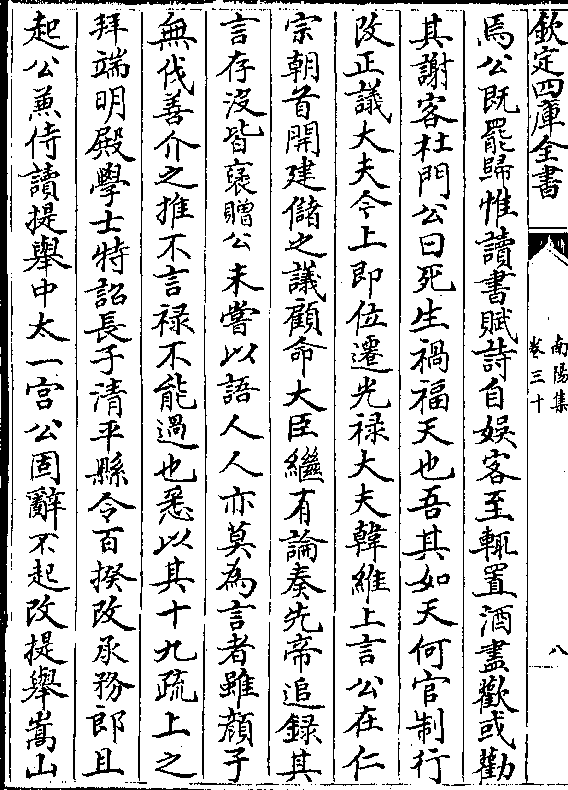 欽定四庫全書
南陽集
卷三十
八
焉公既罷歸惟讀書賦詩自娛客至輒置酒盡歡或勸
其謝客杜門公曰死生禍福天也吾其如天何官制行
改正議大夫今上即位遷光禄大夫韓維上言公在仁
宗朝首開建儲之議顧命大臣繼有論奏先帝追録其
言存沒皆褒贈公未嘗以語人人亦莫為言者雖顔子
無伐善介之推不言禄不能過也悉以其十九疏上之
拜端明殿學士特詔長子清平縣令百揆改承務郎且
起公兼侍讀提舉中太一宫公固辭不起改提舉嵩山